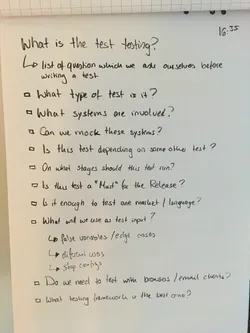 16:35
What is the test testing?
↳ list of question which we ask ourselves before
writing a test
□ What type of test is it?
□ What systems are involved?
□ Can we mock these systems?
□ Is this test depending on some other test?
□ On what stages should this test run?
□ Is this test a "Must" for the Release?
□ Is it enough to test one market / language?
□ What will we use as test input?
↳ false variables / edge cases
↳ different
↳ stop configs
□ Do we need to test with browsers / email clients?
□ What testing framework is the best one?